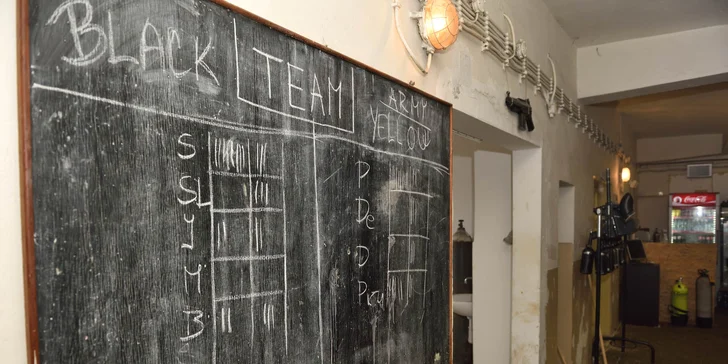 BLACK
TEAM
ARMY
YELLOW
S
SL
J
M
B
S
P
De
D
Coca-Cola